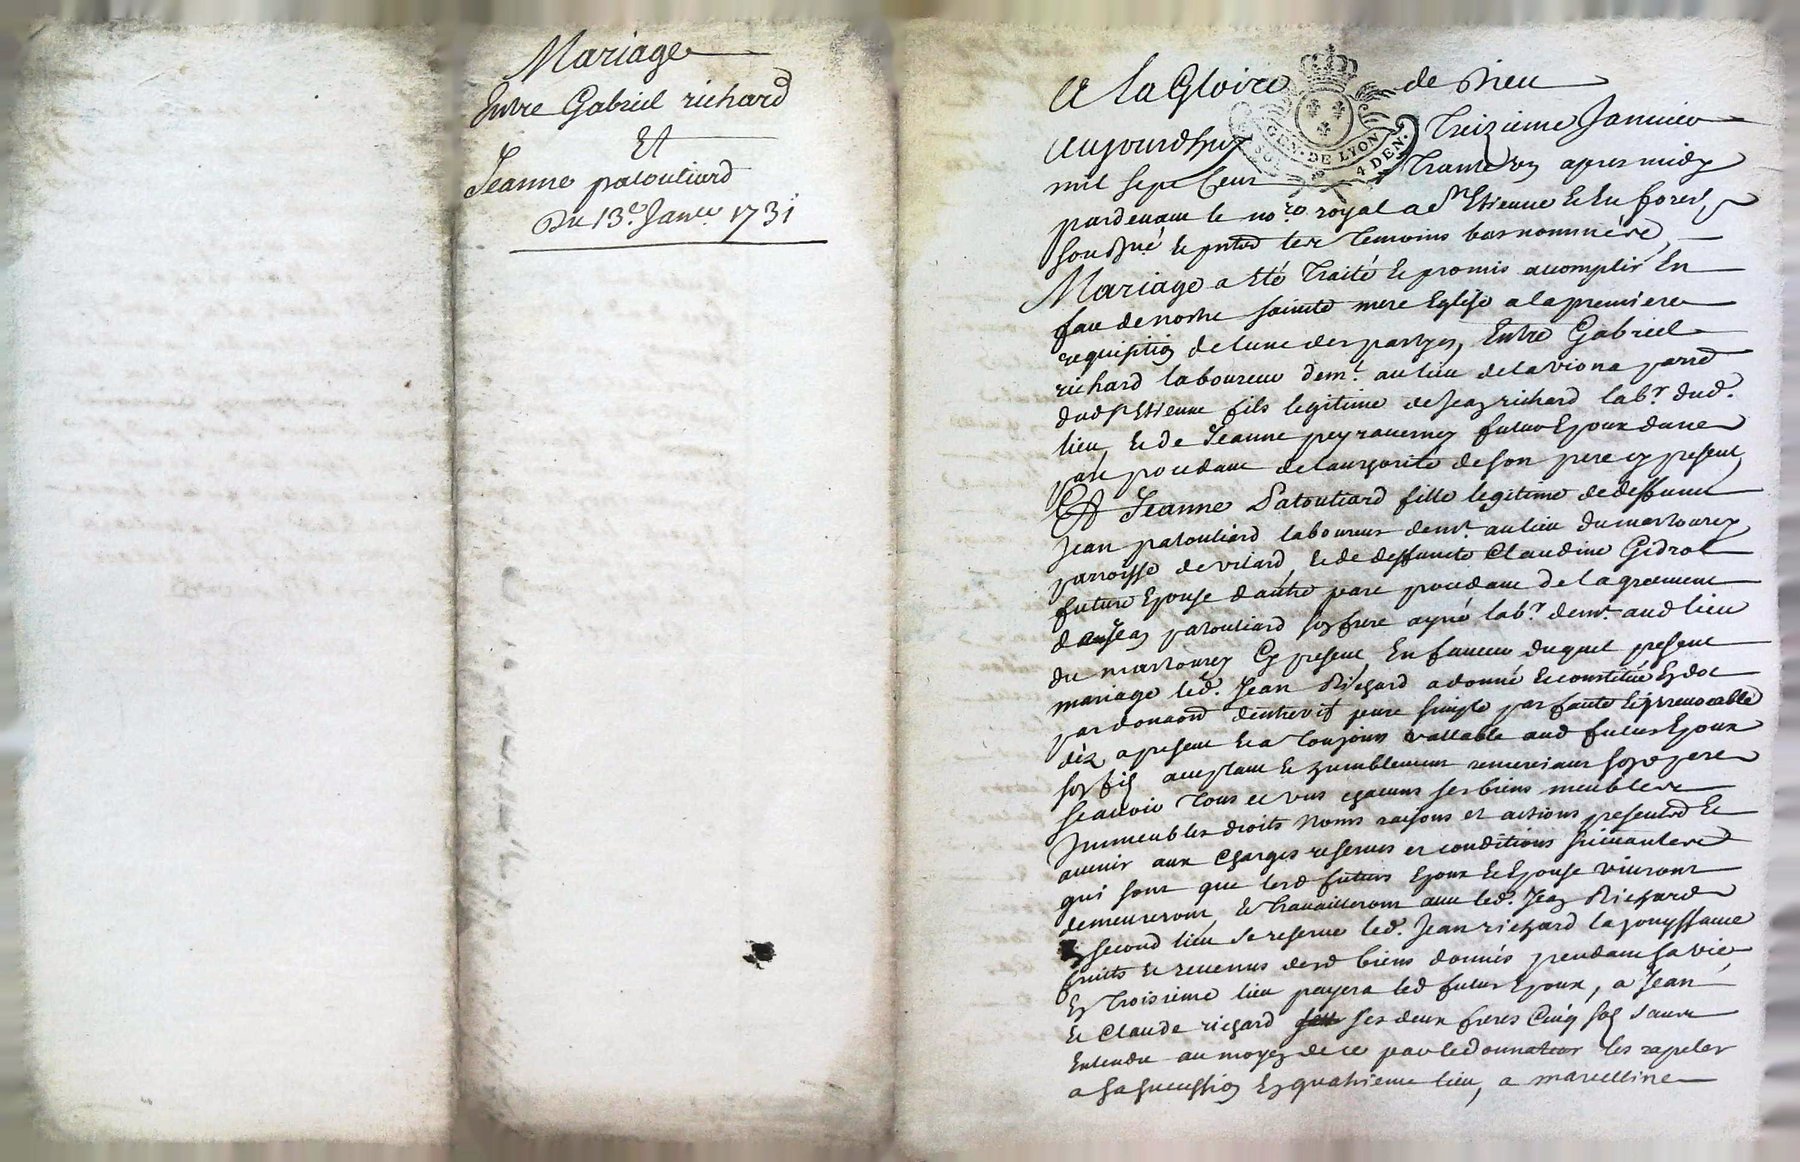 Mariage
Entre Gabriel richard
Et
Jeanne patouliard
Du 13e Janer 1731
A la Gloire de Dieu
GEN. DE LYON
4 DEN.
Aujourdhuy Treizieme Janvier
mil sept Cent Trante un apres midy
pardevant le nore royal a St Etienne et En forest
sousne et presend les Temoins bas nommés
Mariage a Eté Traité et promis accomplir En
face de nostre sainte mere Eglise a la premiere
requisition de lune des partyes, Entre Gabriel
richard laboureur demt au lieu de laviona parrd
dud St Etienne fils legitime de Jean richard labr dud.
lieu, et de Jeanne peyraverney futur Epoux dune
part procedant de lauthorité de son pere cy present,
Et Jeanne Patouliard fille legitime de deffunct
Jean patouliard laboureur demt au lieu du martourey
parroisse de vilard, et de deffuncte Claudine Gidrol
future Epouse dautre part procedant de lagreement
de Jean patouliard son frere ayné labr demt aud lieu
du martourey Cy present En faveur duquel present
mariage led. Jean Richard a donné et constitué En dot
par donaond dentrevif pure simple parfaite et irrevocable
dès apresent et a Toujours vallable aud futur Epoux
son fils acceptant et humblement remerciant sond pere
scavoir Tous et uns chacuns ses biens meubles
Immeubles droits Noms raisons et actions presents Et
avenir aux Charges reserves et conditions suivantes
qui sont que lesd futurs Epoux et Epouse vivront
demeureront, et Travailleront avec led. Jean Richard
En second lieu se reserve led. Jean richard la jouyssance
fruits et revenus desd biens donnés pendant sa vie
En Troisieme lieu payera led futur Epoux, a Jean
Et Claude richard ses deux freres Cinq sols
Entendu au moyen de ce par led donnateur les rapeler
a sa succession En quatrieme lieu, a marcelline